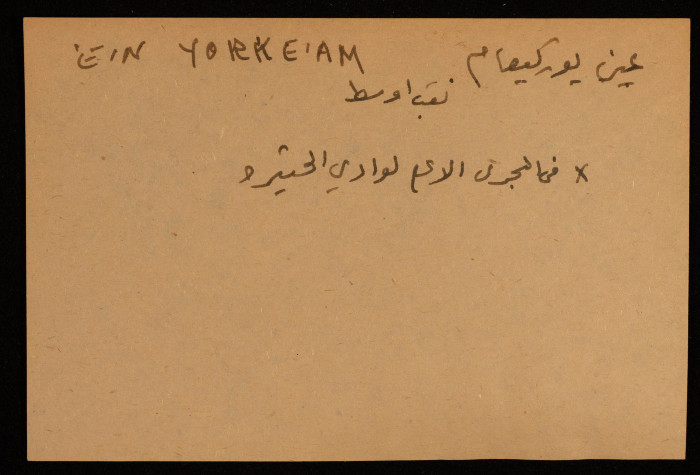 عين يوركيعام 'EIN YORKE'AM
نقب اوسط
x في المجرى الاعلى لوادي الحثيره